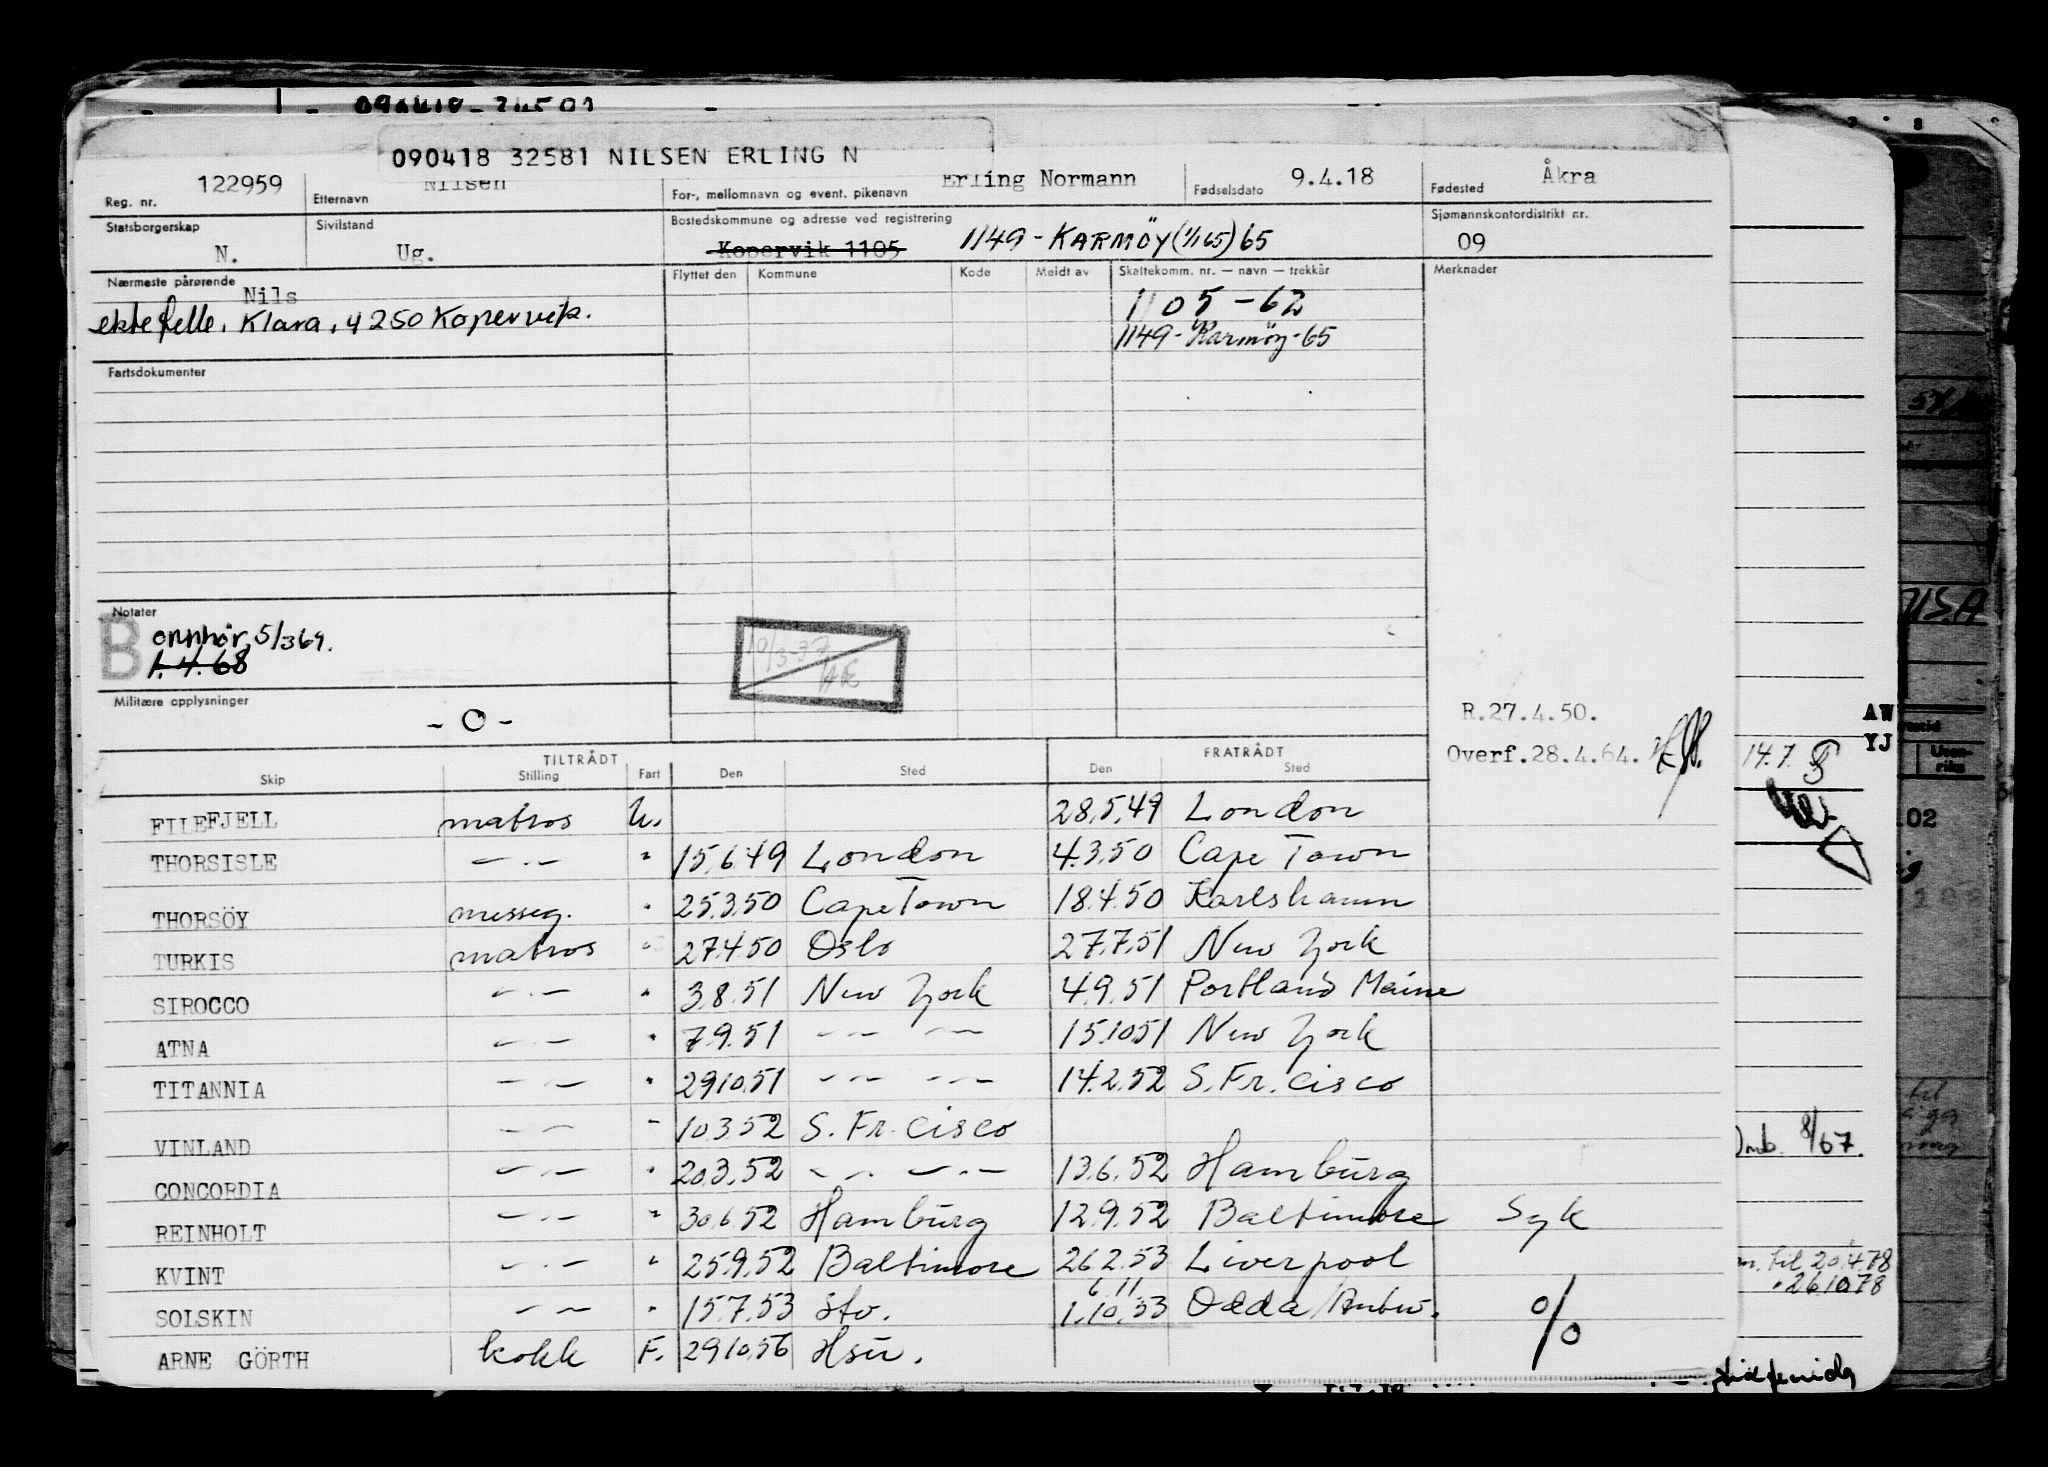 090418 32581 NILSEN ERLING N
Reg. nr. 122959 Etternavn Nilsen For-, mellomnavn og event. pikenavn Erling Normann Fødselsdato 9.4.18 Fødested Åkra
Statsborgerskap N. Sivilstand Ug. Bostedskommune og adresse ved registrering Kopervik 1105 1149 - KARMÖY (1/1 65) 65 Sjømannskontordistrikt nr. 09
Nærmeste pårørende Nils
ektefelle, Klara, 4250 Kopervik.
Flyttet den Kommune Kode Meldt av Skattekomm. nr. — navn — trekkår Merknader
1105 - 62
1149 - Karmöy - 65
Fartsdokumenter
Notater
B
5/3 69.
1.4.68
19/3-37
Militære opplysninger
- O -
R.27.4.50.
Overf.28.4.64.
TILTRÅDT FRATRÅDT
Skip Stilling Fart Den Sted Den Sted
FILEFJELL matros U. 28.5.49 London
THORSISLE — . — " 15.6.49 London 4.3.50 Cape Town
THORSÖY messeg. " 25.3.50 Cape Town 18.4.50 Karlshamn
TURKIS matros " 27.4.50 Oslo 27.7.51 New York
SIROCCO — . — " 3.8.51 New York 4.9.51 Portland Maine
ATNA — . — " 7.9.51 — . — — . — 15.10.51 New York
TITANNIA — . — " 29.10.51 — . — — . — 14.2.52 S. Fr. cisco
VINLAND — . — " 10.3.52 S. Fr. cisco
CONCORDIA — . — " 20.3.52 — . — — . — 13.6.52 Hamburg
REINHOLT — . — " 30.6.52 Hamburg 12.9.52 Baltimore Syk
KVINT — . — " 25.9.52 Baltimore 26.2.53 Liverpool
6.11.
SOLSKIN — . — " 15.7.53 Stv. 1.10.53 Odda/Antw. o/o
ARNE GÖRTH kokk F. 29.10.56 Hsu.
AW
YJ
14.7.
.02
USA
8/67.
til 20.4.78
" 26.10.78